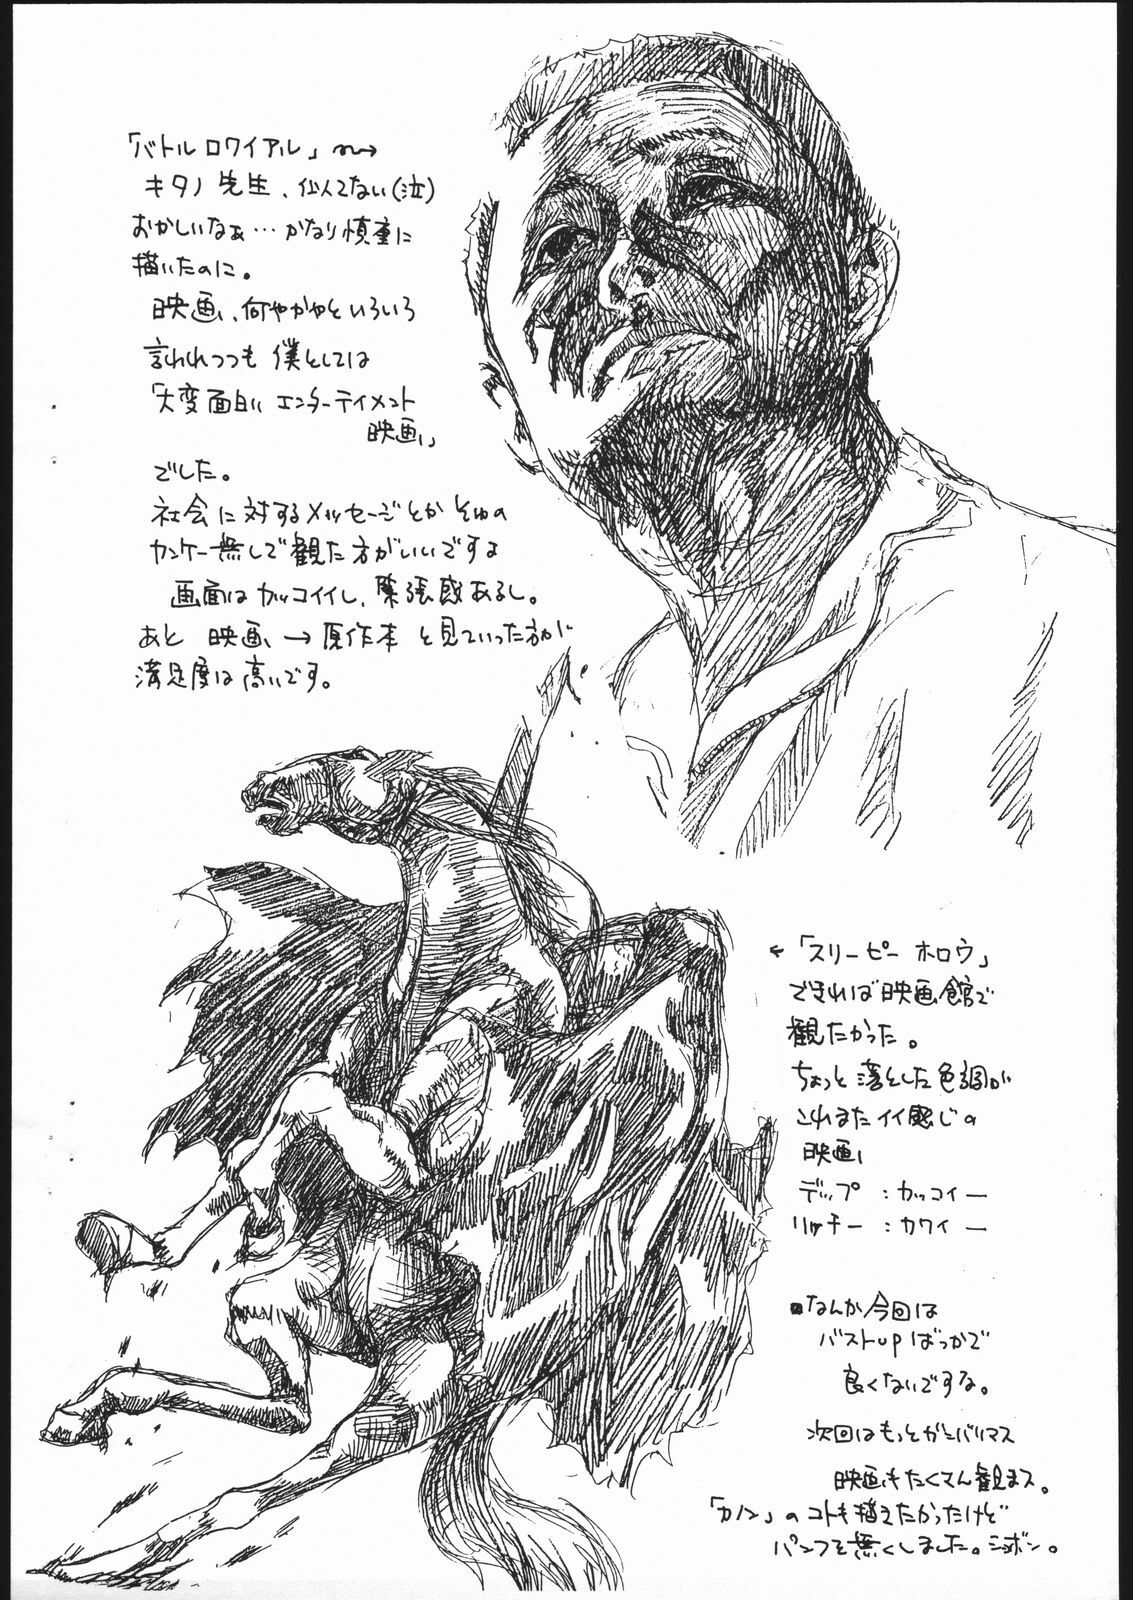 「バトル ロワイアル」
キタノ先生、似てない(泣)
おかしいなぁ…かなり慎重に
描いたのに。
映画、何やかやといろいろ
言われつつも 僕としては
「大変面白い エンターテイメント
映画」
でした。
社会に対するメッセージとか
カンケー無しで観た方がいいですよ
画面はカッコイイし、緊張感あるし。
あと 映画 → 原作本 と見ていった方が
満足度は高いです。
←「スリーピー ホロウ」
できれば映画館で
観たかった。
ちょっと落とした色調が
これまたイイ感じの
映画
デップ：カッコイー
リッチー：カワイー
■なんか今回は
バストupばっかで
良くないですな。
次回はもっとガンバリマス
映画もたくさん観まス。
「カノン」のコトも描きたかったけど
パンフを無くしました。ションボン。